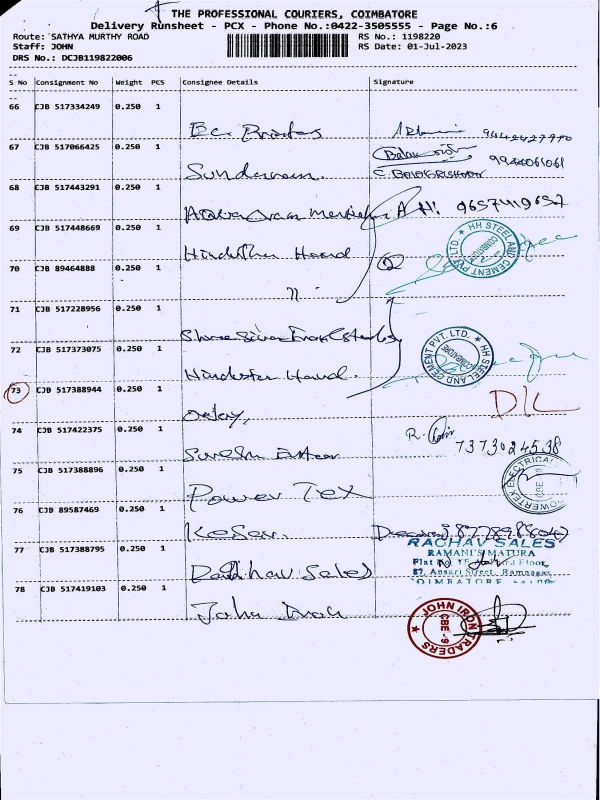 THE PROFESSIONAL COURIERS, COIMBATORE
Delivery Runsheet - PCX - Phone No.:0422-3505555 - Page No.:6
Route: SATHYA MURTHY ROAD RS No.: 1198220
Staff: JOHN RS Date: 01-Jul-2023
DRS No.: DCJB119822006
S No Consignment No Weight PCS Consignee Details Signature
66 CJB 517334249 0.250 1
9442427770
67 CJB 517066425 0.250 1
Sundaram. Balakrishnan 9944061061
C. BALAKRISHNAN
68 CJB 517443291 0.250 1
9657419657
69 CJB 517448669 0.250 1
HH STEEL AND CEMENT PVT. LTD. COIMBATORE
70 CJB 89464888 0.250 1
"
71 CJB 517228956 0.250 1
72 CJB 517373075 0.250 1
HH STEEL AND CEMENT PVT. LTD. COIMBATORE
73 CJB 517388944 0.250 1
D/L
74 CJB 517422375 0.250 1
Suresh R. 7373024538
75 CJB 517388896 0.250 1
Power Tex POWERTEX ELECTRICAL CBE
76 CJB 89587469 0.250 1
Kesav.
77 CJB 517388795 0.250 1
Raghav Sales RAGHAV SALES
RAMANI'S MATURA
Flat No Floor,
87, Ansari Street, Ramnagar,
COIMBATORE
78 CJB 517419103 0.250 1
John Iron JOHN IRON TRADERS CBE - 9